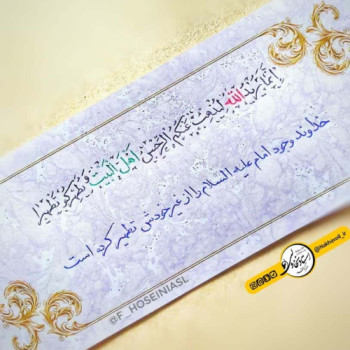 إنما یرید الله لیذهب عنکم الرجس اهل البیت و یطهرکم تطهیرا
خداوند وجود امام علیه السلام را از غیر خودش تطهیر کرده است
@F_HOSEINIASL